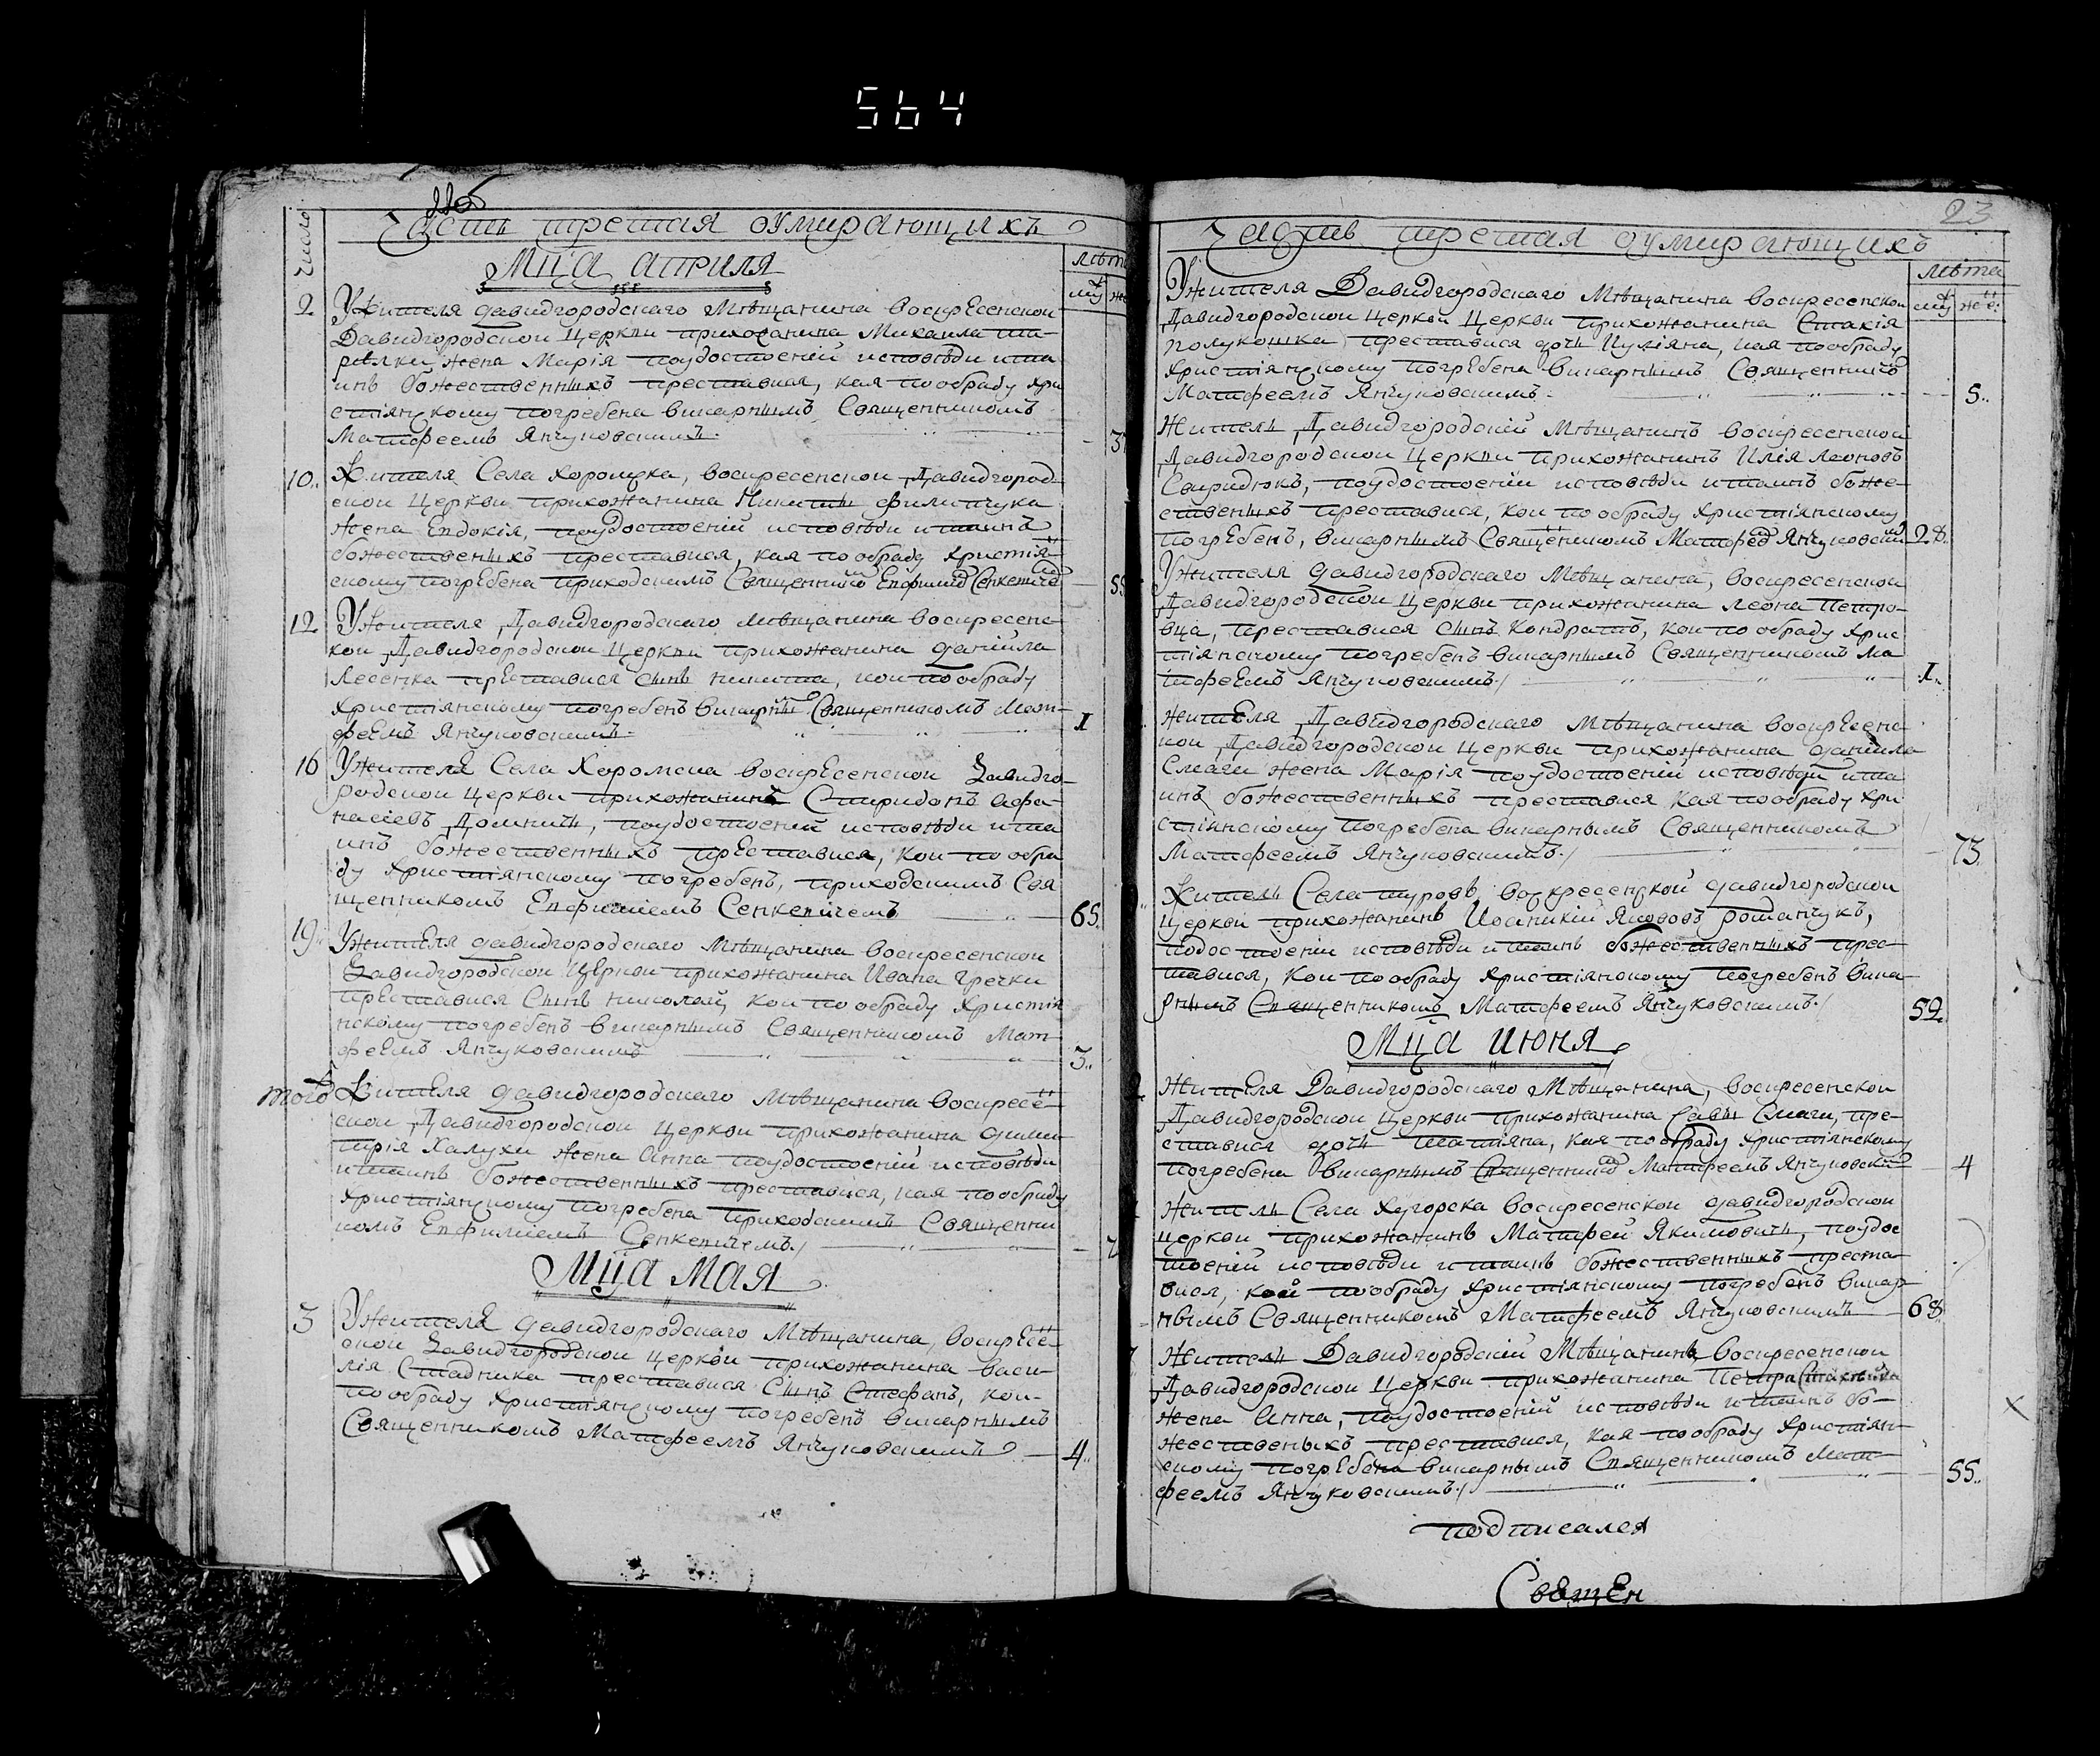 564
число
Часть третая оумирающихъ
Мца априля
лѣта
2
У жителя давидгородскаго мѣщанина воскресенской
Давидгородской церкви прихожанина Михаила
жена Марія поудостоеній исповѣди и та
инъ божественныхъ преставися, кая по обряду хри
стіянскому погребена викарнымъ Священникомъ
Матфеемъ Янчуковскимъ
10
Жителя Села Хоромска, воскресенской Давидгород
ской церкви прихожанина Никиты филипчука
жена Евдокія, поудостоеній исповѣди и таинъ
божественыхъ преставися, кая по обряду христія
скому погребена приходскимъ Священнико Евфиміе Сенкевиче
12
У жителя Давидгородскаго мѣщанина воскресенс
кой Давидгородской церкви прихожанина даніила
Лесечка преставися сынъ никита, кой по обряду
христіянскому погребенъ викарны Священникомъ Мат
феемъ Янчуковскимъ
1
16
У жителя Села Хоромска воскресенской Давидго
родской церкви прихожанинъ Спиридонъ Афа
насіевъ Домничъ, поудостоеній исповѣди и та
инъ божественныхъ преставися, кой по обря
ду христіянскому погребенъ, приходскимъ Свя
щенникомъ Евфиміемъ Сенкевичемъ
65
19
У жителя давидгородскаго мѣщанина воскресенской
Давидгородской церкви прихожанина Ивана Гречки
преставися Сынъ николай, кой по обряду христія
нскому погребенъ викарнымъ Священникомъ Мат
феемъ Янчуковскимъ
3
того
Жителя давидгородскаго мѣщанина воскресе
ской Давидгородской церкви прихожанина дими
трія Халухи жена Анна поудостоеній исповѣди
и таинъ божественныхъ преставися, кая по обряду
христіянскому погребена приходскимъ Священни
комъ Евфиміемъ Сенкевичемъ
Мца Мая
3
У жителя давидгородскаго мѣщанина, воскресе
ской Давидгородской церкви прихожанина васи
лія Стадника преставися Сынъ Стефанъ, кой
по обряду христіянскому погребенъ викарнымъ
Священникомъ Матфеемъ Янчуковскимъ
4
23
Часть третая оумирающихъ
лѣта
У жителя Давидгородскаго мѣщанина воскресенской
Давидгородской церкви церкви прихожанина Стахія
полукошка преставися дочь Иуліяна, кая по обряду
христіянскому погребена викарнымъ Священнико
Матфеемъ Янчуковскимъ
5
Житель Давидгородскій мѣщанинъ воскресенской
Давидгородской церкви прихожанинъ Илія Леоновъ
Свиридюкъ, поудостоеній исповѣди и таинъ боже
ственыхъ преставися, кой по обряду христіянскому
погребенъ, викарнымъ Священикомъ Матфее Янчуковски
28
У жителя давидгородскаго мѣщанина, воскресенской
Давидгородской церкви прихожанина леона Петро
вца, преставися сынъ Кондратъ, кой по обряду хрис
тіянскому погребенъ викарнымъ Священникомъ Ма
тфеемъ Янчуковскимъ
1
жителя Давидгородскаго мѣщанина воскресенс
кой Давидгородской церкви прихожанина даниила
Смаги жена Марія поудостоеній исповѣди и та
инъ божественныхъ преставися кая по обряду хри
стіянскому погребена викарнымъ Священникомъ
Матфеемъ Янчуковскимъ
73
Житель Села туровъ, воскресенской давидгородской
церкви прихожанинъ Иоаникій Яковъ рошанчукъ,
подостоеніи исповѣди и таинъ божественныхъ прес
тавися, кой по обряду христіянскому погребенъ вика
рнымъ Священникомъ Матфеемъ Янчуковскимъ
59
Мца июня
Жителя Давидгородскаго мѣщанина, воскресенской
Давидгородской церкви прихожанина Савы Смаги, пре
ставися дочь татіяна, кая по обряду христіянскому
погребена викарнымъ Священнико Матфеемъ Янчуковски
4
Житель Села Хугорска воскресенской давидгородской
церкви прихожанинъ Матфей Якимовичъ, поудос
тоеній исповѣди и таинъ божественныхъ преста
вися, кой по обряду христіянскому погребенъ викар
нымъ Священникомъ Матфеемъ Янчуковскимъ
68
Житель Давидгородскій мѣщанинъ воскресенской
Давидгородской церкви прихожанина Петра
жена Анна, поудостоеній исповѣди и таинъ бо
жественыхъ преставися, кая по обряду христіян
скому погребена викарнымъ Священникомъ Мат
феемъ Янчуковскимъ
55
подписался
Свящeн